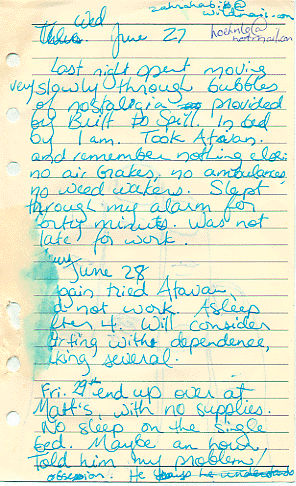 Wed
Thurs June 27
hotmail.com
Last night spent moving
very slowly through bubbles
of nostalgia provided
by Built to Spill. In bed
by 1 am. Took Ativan.
and remember nothing else:
no air brakes, no ambulances
no weed wakers. Slept
through my alarm for
forty minutes. Was not
late for work.
June 28
again tried Ativan
did not work. Asleep
after 4. Will consider
flirting with dependence,
taking several.
Fri. 29th end up over at
Matt's with no supplies.
No sleep on the single
bed. Maybe an hour,
told him my problem,
obsession. He says he understands